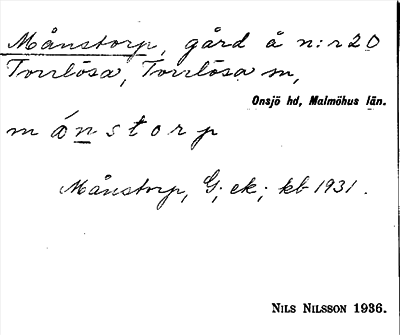 Månstorp, gård å n:r 20
Torrlösa, Torrlösa sn,
Onsjö hd, Malmöhus län.
månstorp
Månstorp, G; ek; kb 1931.
NILS NILSSON 1936.